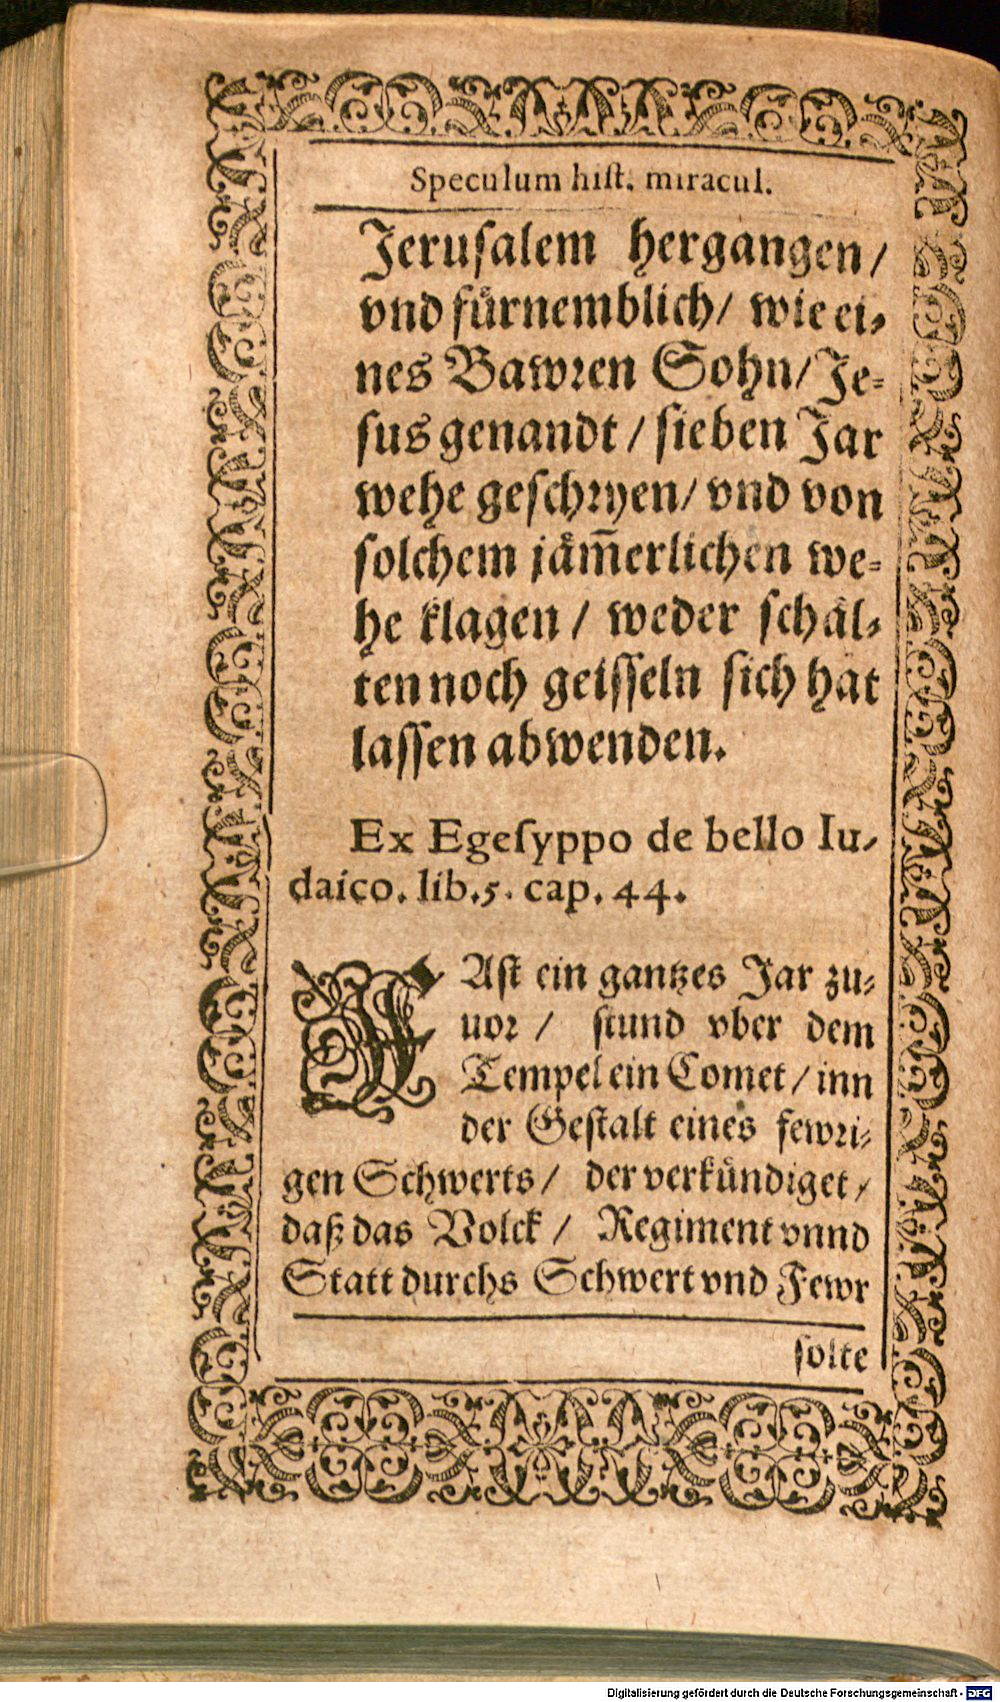 Speculum hiſt. miracul.
Jeruſalem hergangen/
vnd fuͤrnemblich/ wie ei-
nes Bawren Sohn/ Je-
ſus genandt / ſieben Jar
wehe geſchryen/ vnd von
ſolchem jaͤm̃erlichen we-
he klagen / weder ſchaͤl-
ten noch geiſſeln ſich hat
laſſen abwenden.
Ex Egeſyppo de bello Iu-
daico. lib.5. cap. 44.
FAſt ein gantzes Jar zu-
uor / ſtund vber dem
Tempel ein Comet / inn
der Geſtalt eines fewri-
gen Schwerts / der verkuͤndiget /
daß das Volck / Regiment vnnd
Statt durchs Schwert vnd Fewr
ſolte
Digitalisierung gefördert durch die Deutsche Forschungsgemeinschaft - DFG